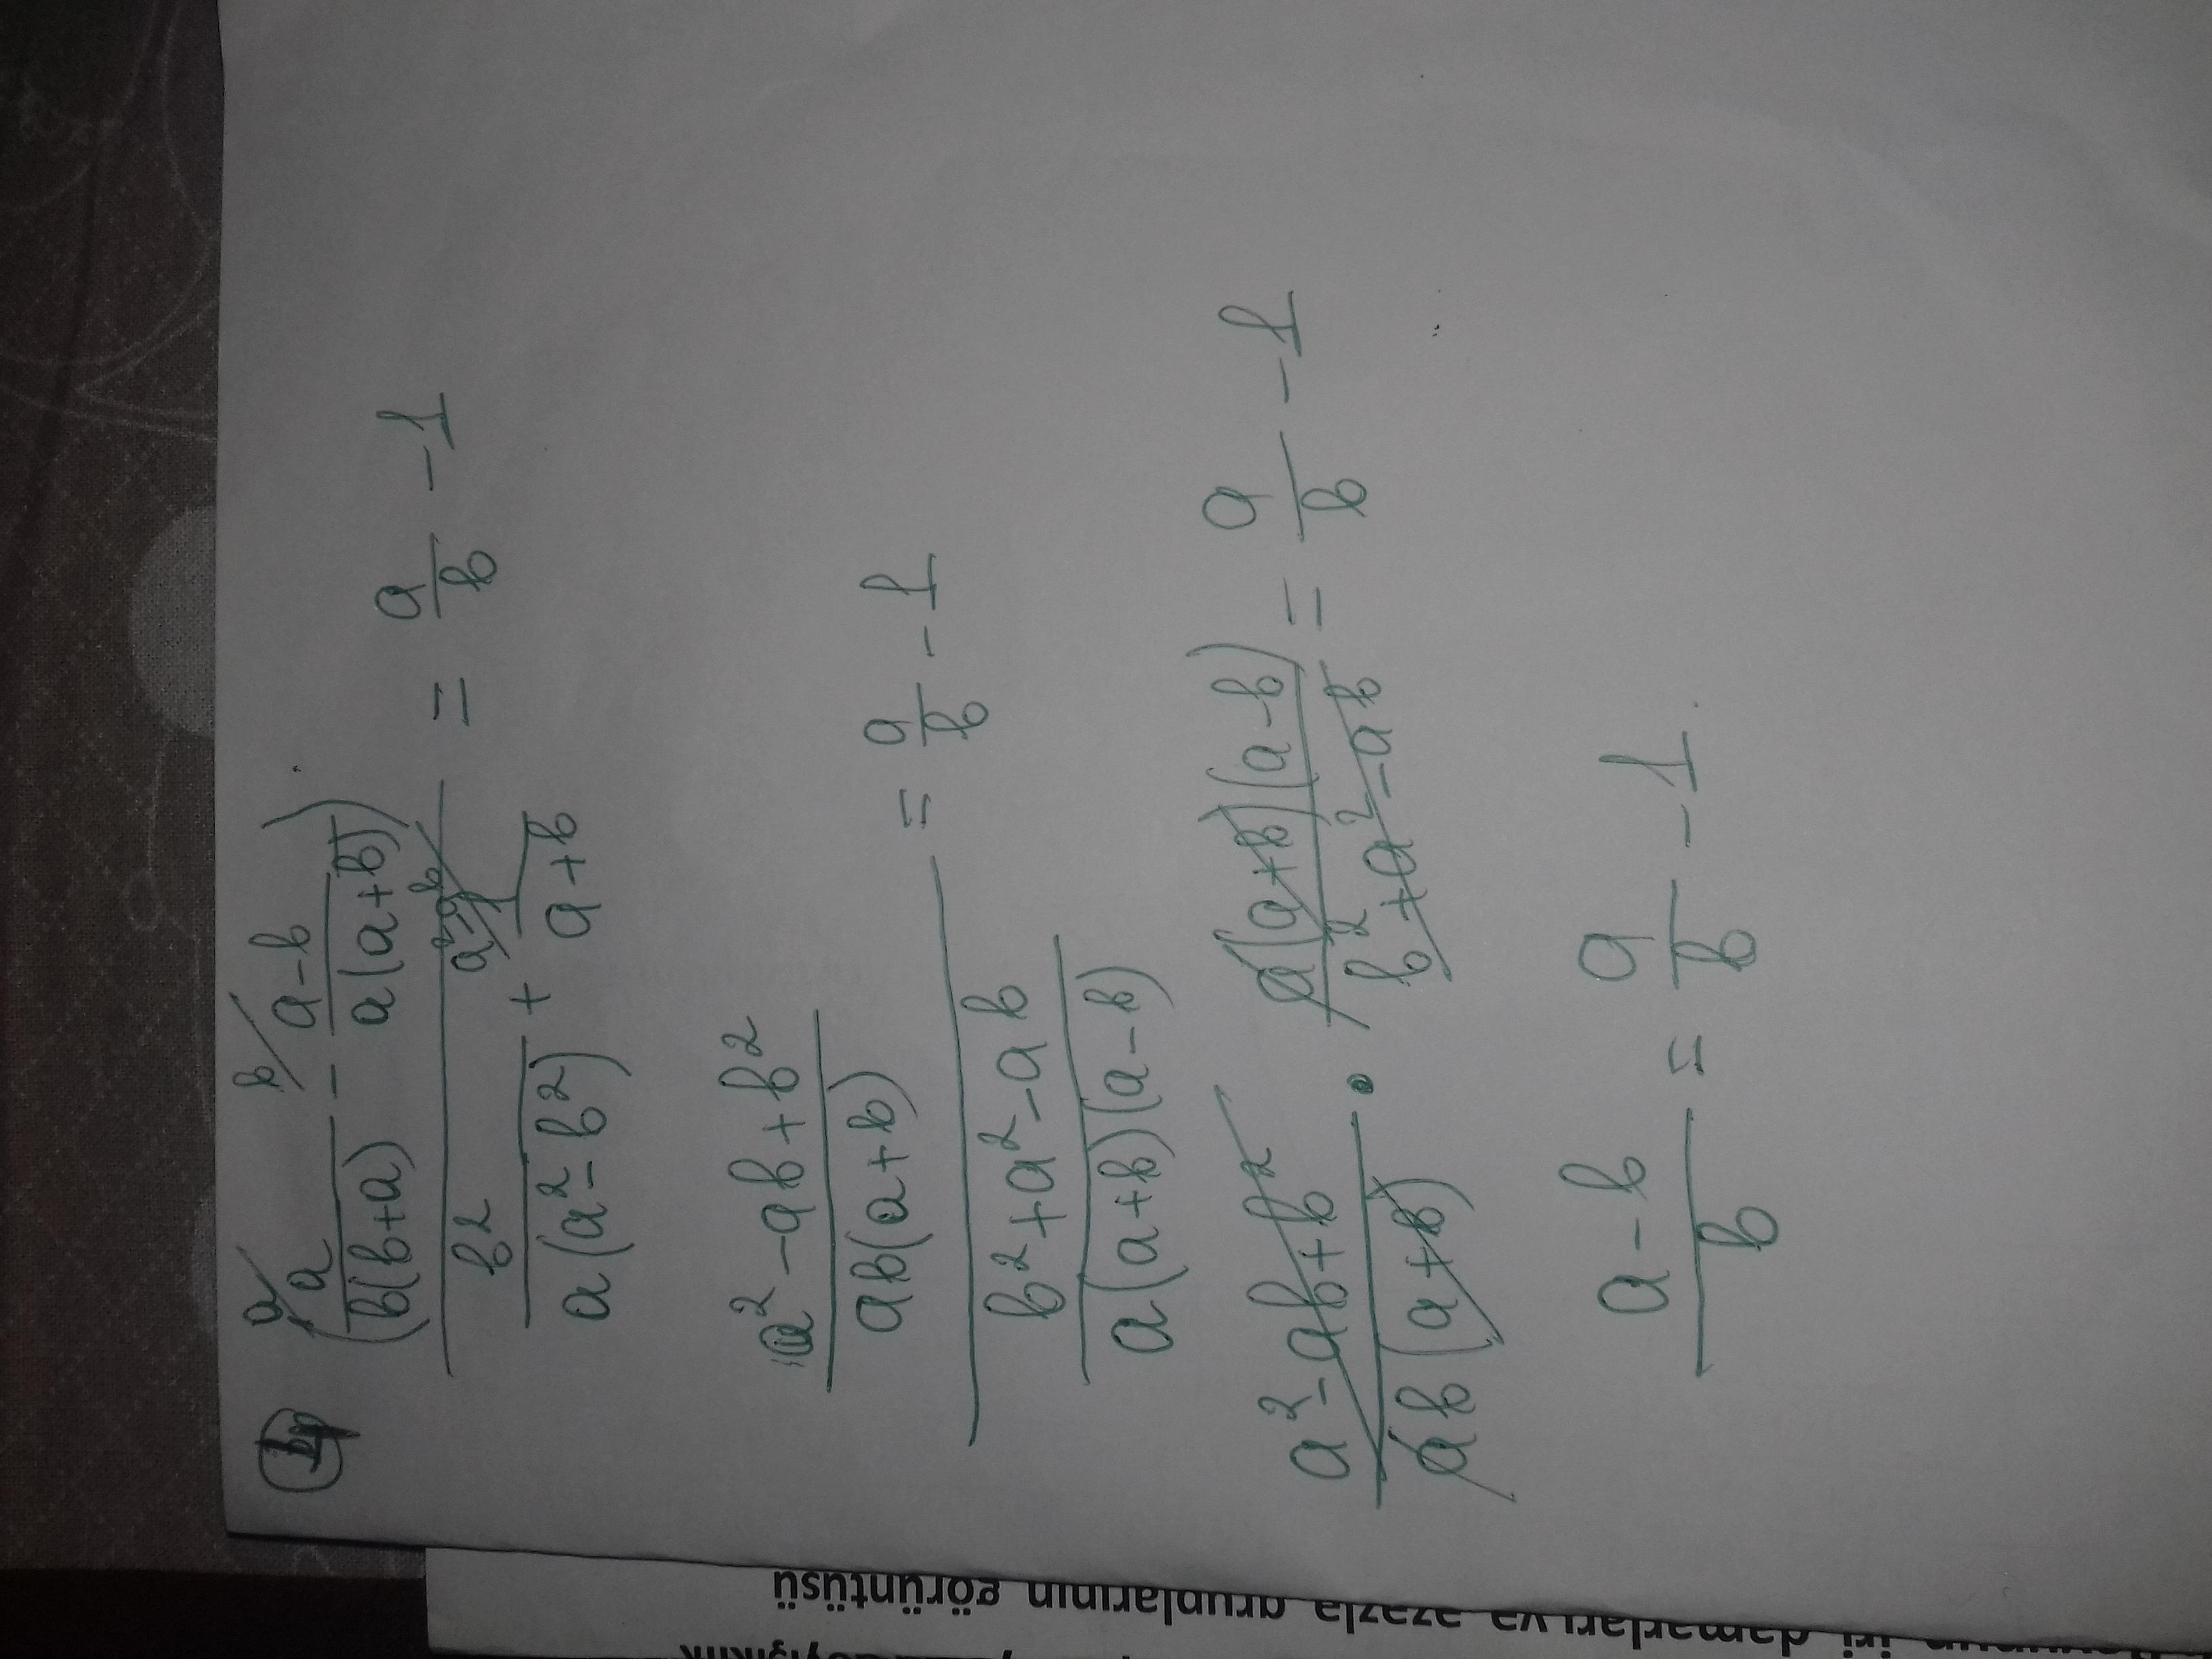 a/ b/
(a/(b(b+a)) - (a-b)/(a(a+b))) = a/b - 1
b²/(a(a²-b²)) + 1/(a+b)
a²-ab
(a²-ab+b²)/(ab(a+b)) = a/b - 1
(b²+a²-ab)/(a(a+b)(a-b))
(a²-ab+b²)/(ab(a+b)) · (a(a+b)(a-b))/(b²+a²-ab) = a/b - 1
(a-b)/b = a/b - 1
damarları və əzələ qruplarının görüntüsü